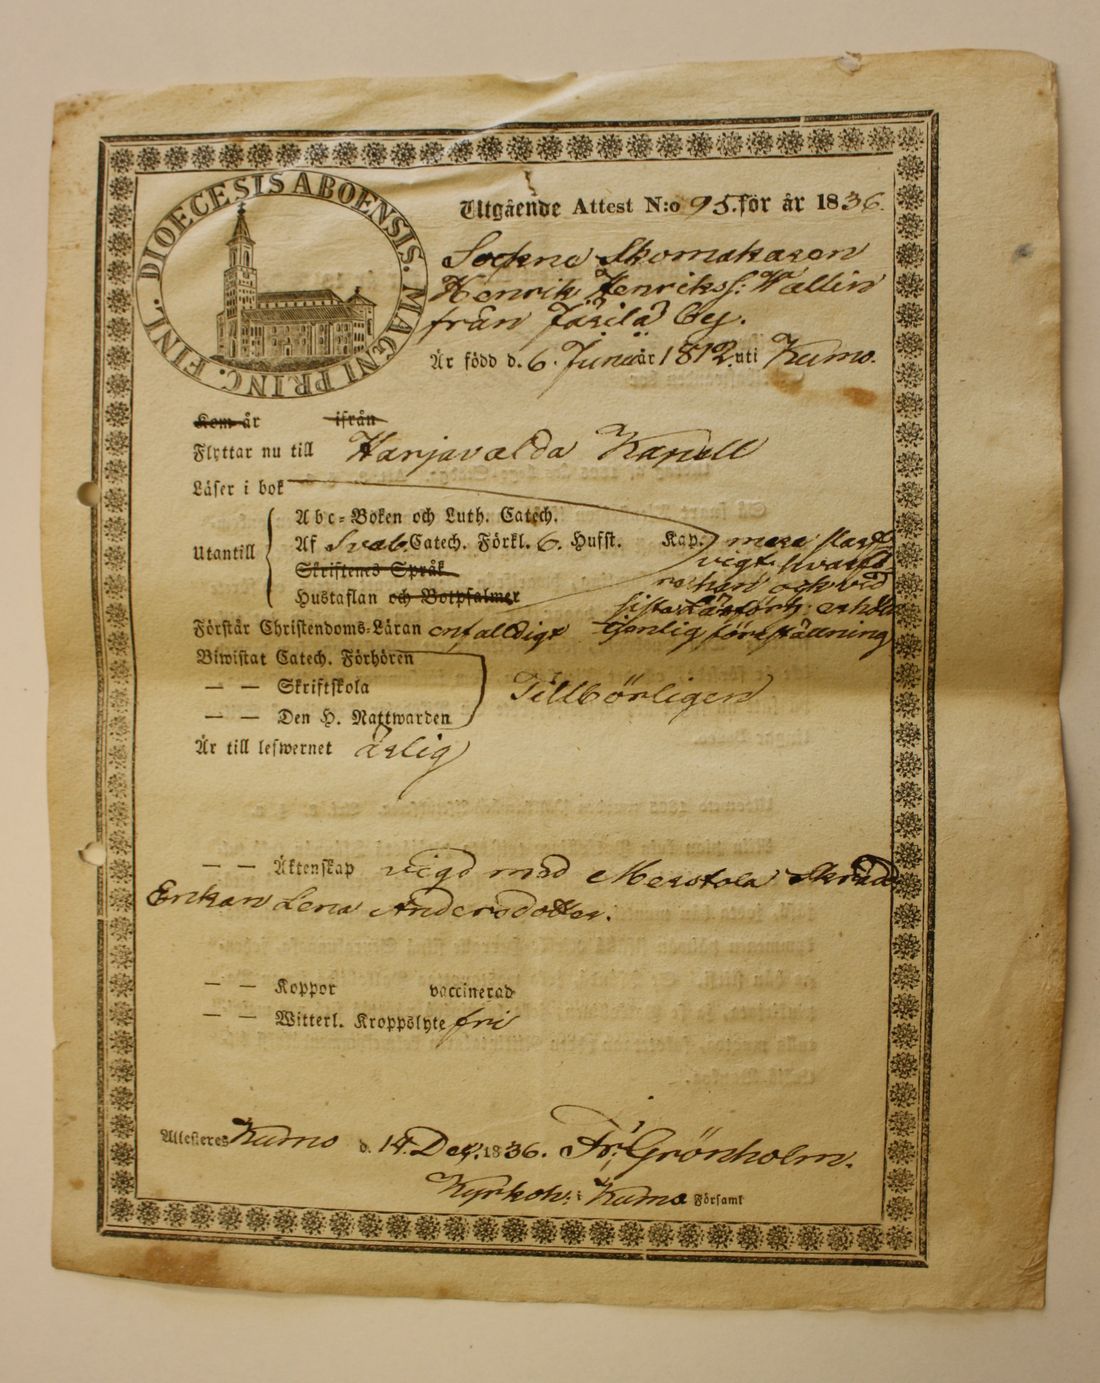 DIOECESIS ABOENSIS. MAGNI PRINC. FINL.
Utgående Attest N:o 95. för år 1836.
Sockne Skomakaren
Henrik Henrikss: Wallin
från Jäsilä by.
Är född d. 6. Junii år 1812. uti Kumo.
Kom år ifrån
Flyttar nu till Harjavalda Kapell
Läser i bok
Abc-Boken och Luth. Catech.
Utantill Af Sveb. Catech. Förkl. 6. Hufst. Kap.
Skriftenes Språk
Hustaflan och Botpsalmer
Förstår Christendoms-Läran enfalldigt tjenlig föreställning
Biwistat Catech. Förhören
— — Skriftskola Tillbörligen
— — Den H. Nattwarden
Är till lefwernet ärlig
— — Äktenskap vigd med Merstola
Lena Andersdotter.
— — Koppor vaccinerad
— — Witterl. Kroppslyte fri
Attesteres Kumo d. 14. Dec. 1836. Fr: Grönholm.
Kyrkoh: i Kumo Församl